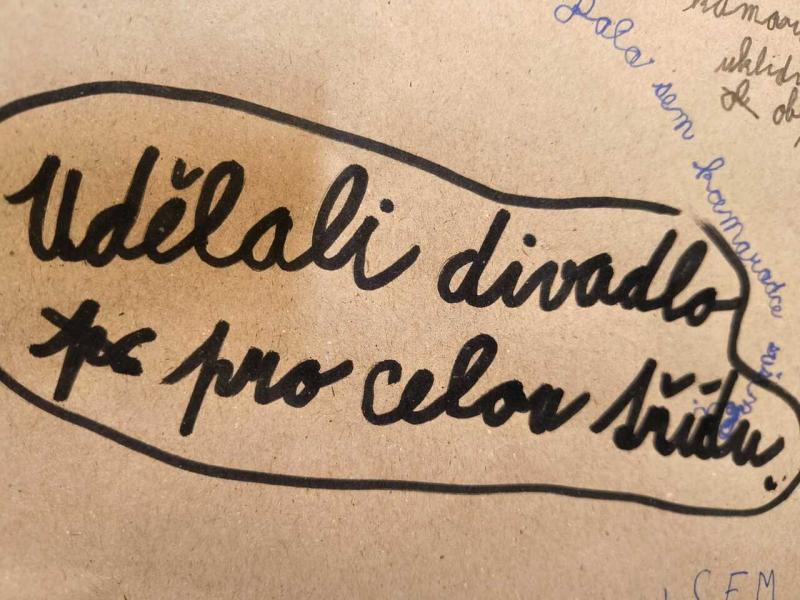 Udělali divadlo
pro celou třídu.
Dala sem kamarádce
uklidi
SEM